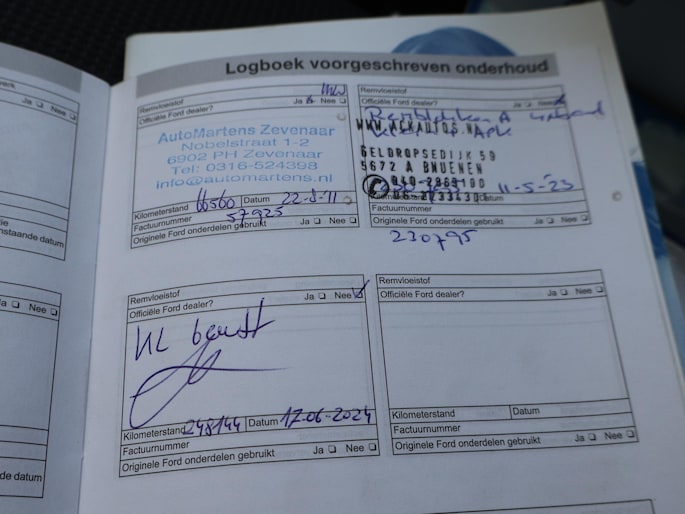 Logboek voorgeschreven onderhoud
werk
Ja Nee
nstaande datum
Ja Nee
de datum
Remvloeistof
Officiële Ford dealer? Ja Nee
AutoMartens Zevenaar
Nobelstraat 1-2
6902 PH Zevenaar
Tel: 0316-524398
info@automartens.nl
Kilometerstand 66560 Datum 22-8-11
Factuurnummer 57925
Originele Ford onderdelen gebruikt
Remvloeistof
Officiële Ford dealer? Ja Nee
WWW.ACKAUTOS.NL
GELDROPSEDIJK 59
5672 A BNUENEN
11-5-23
Factuurnummer
Originele Ford onderdelen gebruikt
230795
Remvloeistof
Officiële Ford dealer? Ja Nee
KL beurt
Kilometerstand 248144 Datum 17-06-2024
Factuurnummer
Originele Ford onderdelen gebruikt Ja Nee
Remvloeistof
Officiële Ford dealer? Ja Nee
Kilometerstand Datum
Factuurnummer
Originele Ford onderdelen gebruikt Ja Nee